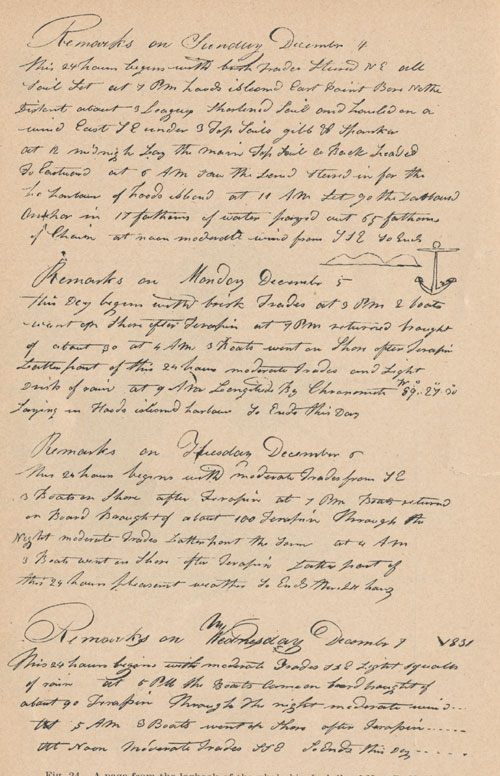 Remarks on Sunday December 4
this 24 hours begins with brisk trades Steerd N E all
Sail Set at 7 P m hoods island East Point Bore N the
Distent about 3 Leagus Shortened Sail and hauled on a
wind East S E under 3 Top Sails gibb & Spanker
at 12 midnigh Lay the main Top Sail to Back headed
To Eastward at 6 A m saw the Land Steerd in for the
harbour of hoods island at 11 A m Let go the Larboard
Anchor in 17 fathoms of water payed out 65 fathoms
of Chain at noon moderate wind from S S E So Ends
Remarks on Monday December 5
this Day begins with brisk Trades at 3 P m 2 boats
went on Shore after Terapin at 7 P m returned braught
of about 30 at 4 A m 3 Boats went on Shore after Terapin
Latter part of this 24 hours moderate Trades and Light
of rain at 9 A m Longitude By Chronometer W 89..29..30
Laying in Hoods island harbour So Ends This Day
Remarks on Tuesday December 6
this 24 hours begins with moderate Trades from S E
3 Boats on Shore after Terapin at 7 P m Boats returned
on Board Braught of about 100 Terapin Through the
Night moderate Trades Latter part the Same at 4 A m
3 Boats went on Shore after Terapin Latter part of
this 24 hours pleasent weather So Ends these 24 hours
Remarks on Wednesday December 7 1831
This 24 hours begins with moderate Trades S S E Light Squalls
of rain at 5 P M the Boats Came on board braught of
about 90 Terrapin Through the night moderate wind...
at 5 A M 3 Boats went on Shore after Terrapin.....
at Noon Moderate Trades S S E So Ends this Day.....
Fig. 24. A page from the logbook of the